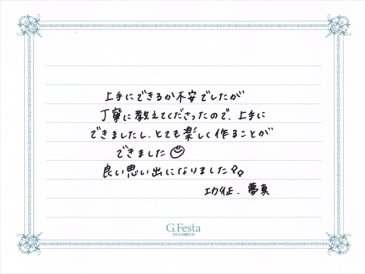 上手にできるか不安でしたが
丁寧に教えてくださったので、上手に
できましたし、とても楽しく作ることが
できました
良い思い出になりました。
G.Festa